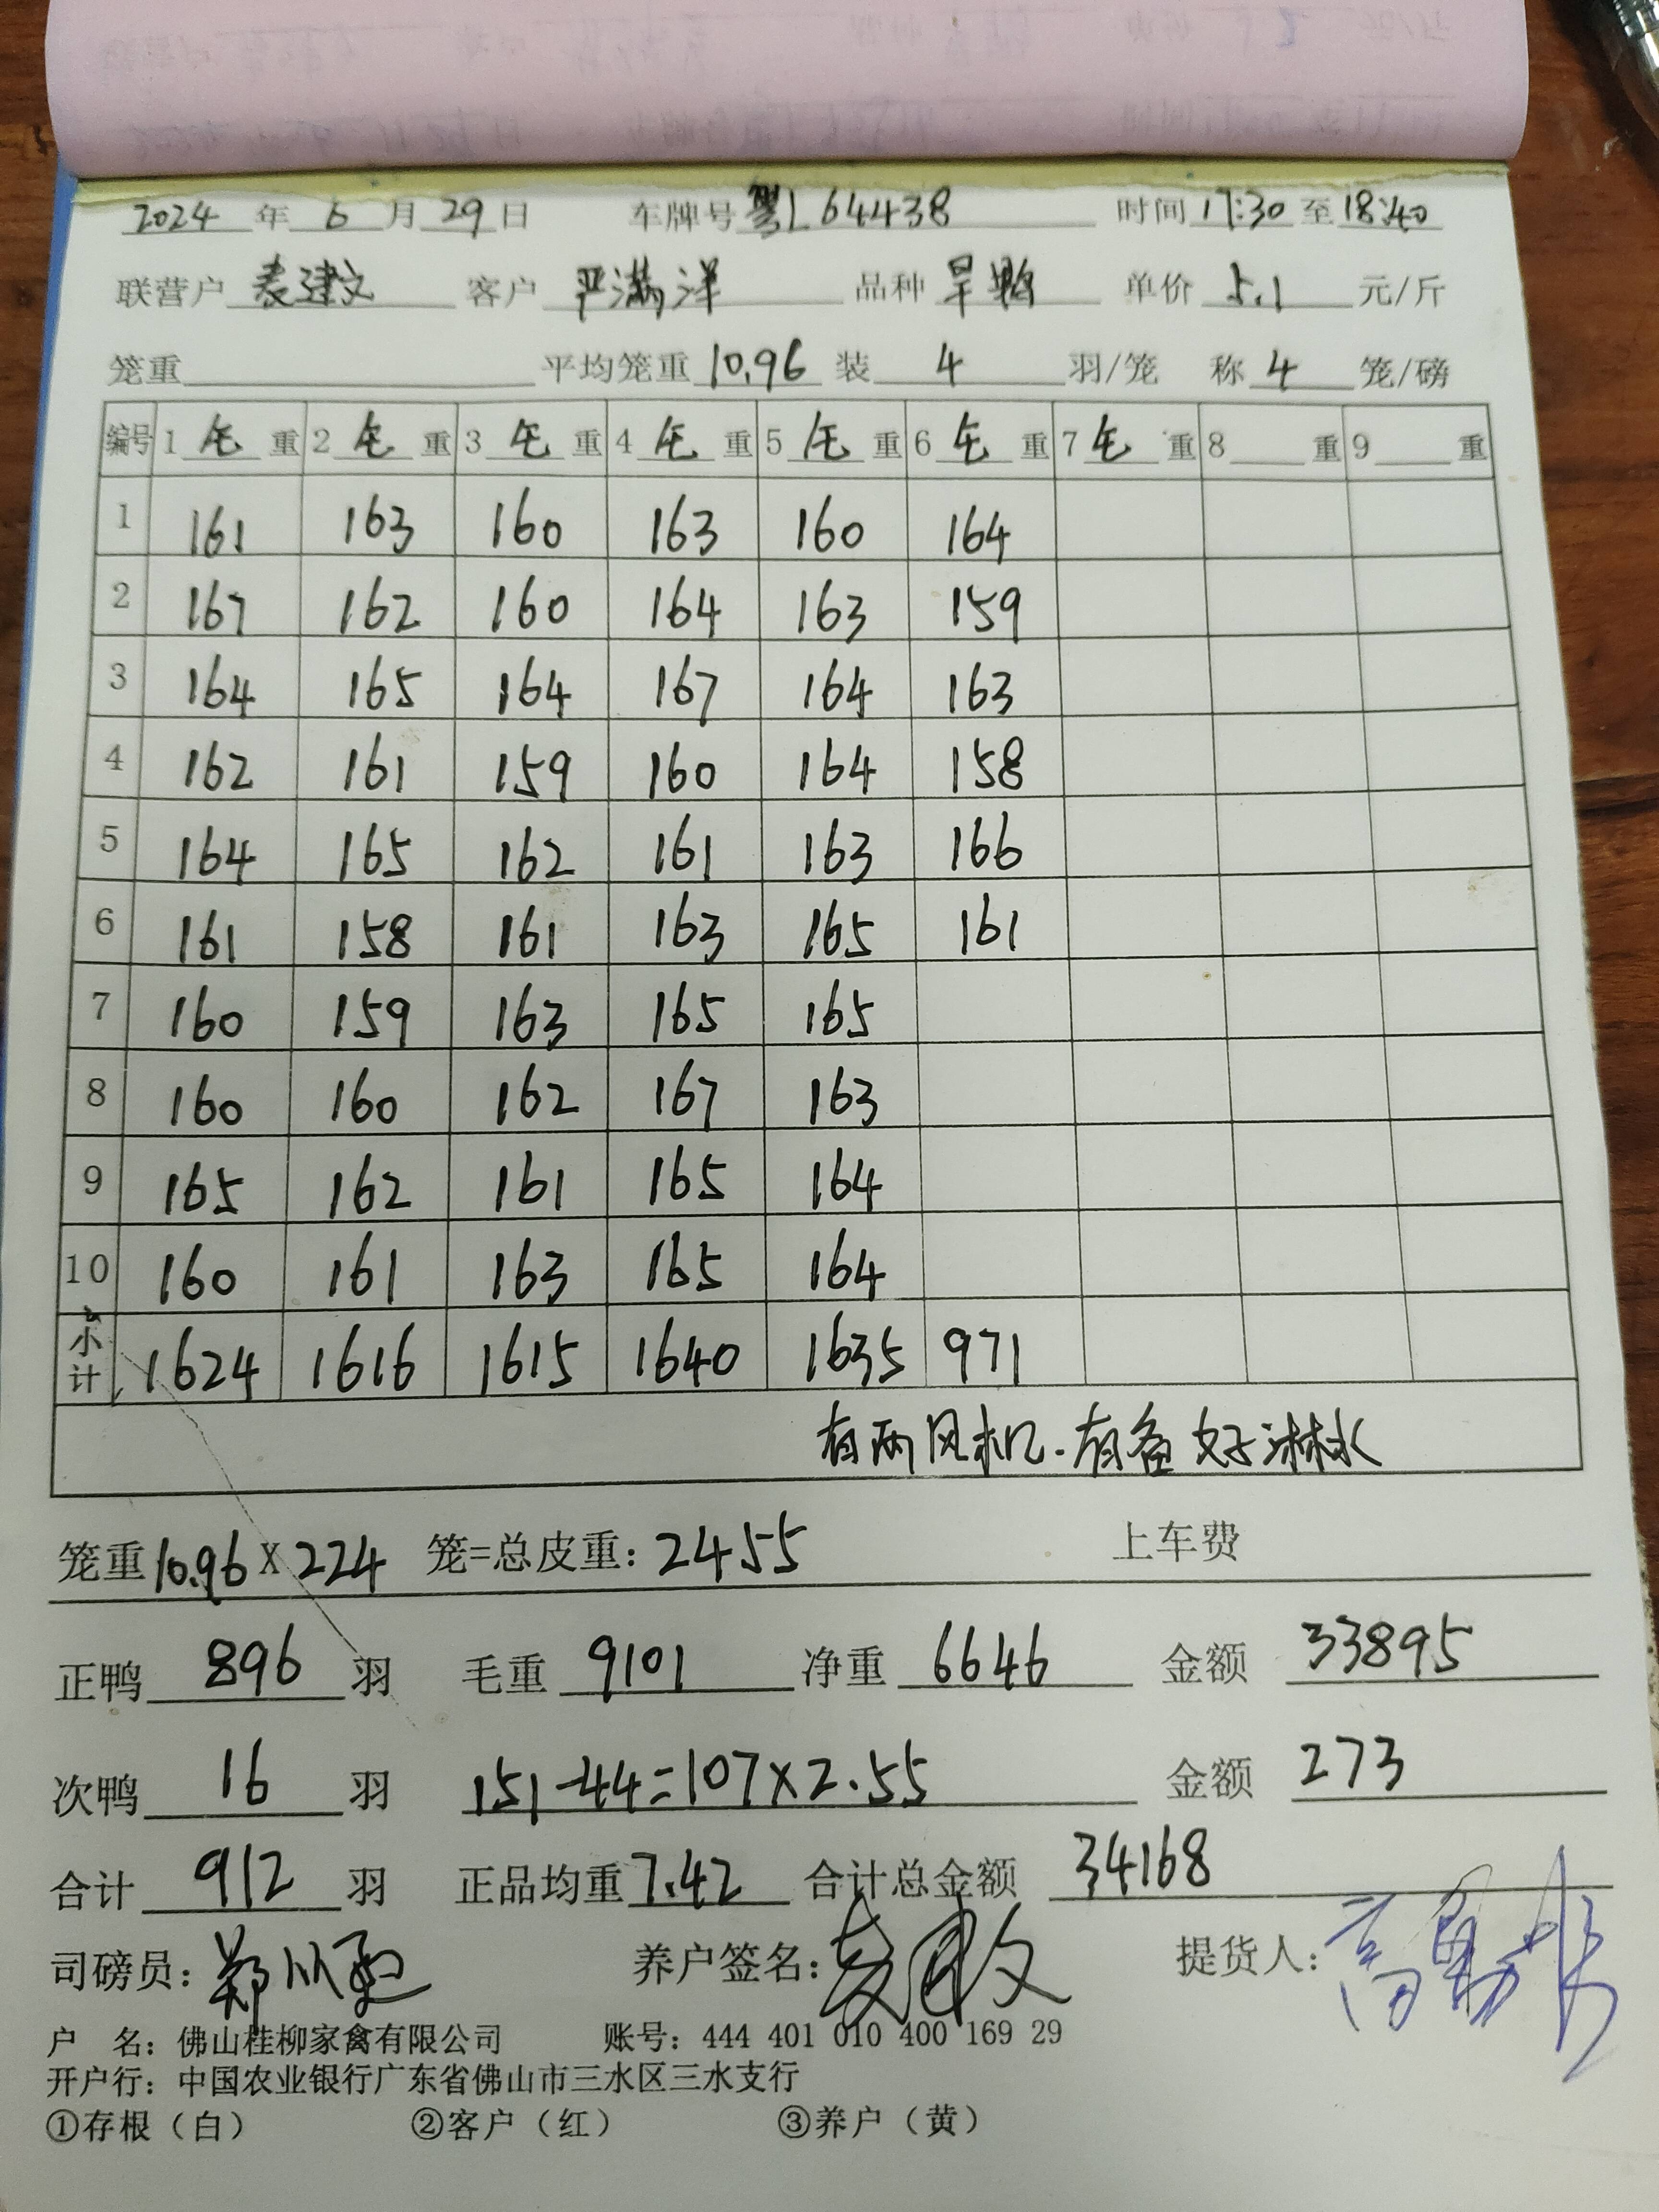 2024 年 6 月 29 日 车牌号 粤L 64438 时间 17:30 至 18:40
联营户 袁建文 客户 严满洋 品种 旱鸭 单价 5.1 元/斤
笼重 平均笼重 10.96 装 4 羽/笼 称 4 笼/磅
编号 1 毛 重 2 毛 重 3 毛 重 4 毛 重 5 毛 重 6 毛 重 7 毛 重 8 重 9 重
1 161 163 160 163 160 164
2 167 162 160 164 163 159
3 164 165 164 167 164 163
4 162 161 159 160 164 158
5 164 165 162 161 163 166
6 161 158 161 163 165 161
7 160 159 163 165 165
8 160 160 162 167 163
9 165 162 161 165 164
10 160 161 163 165 164
小计 1624 1616 1615 1640 1635 971
有两风机.有备好淋水
笼重 10.96 X 224 笼=总皮重: 2455 上车费
正鸭 896 羽 毛重 9101 净重 6646 金额 33895
次鸭 16 羽 151-44=107×2.55 金额 273
合计 912 羽 正品均重 7.42 合计总金额 34168
司磅员: 养户签名: 提货人:
户 名: 佛山桂柳家禽有限公司 账号: 444 401 010 400 169 29
开户行: 中国农业银行广东省佛山市三水区三水支行
①存根（白） ②客户（红） ③养户（黄）